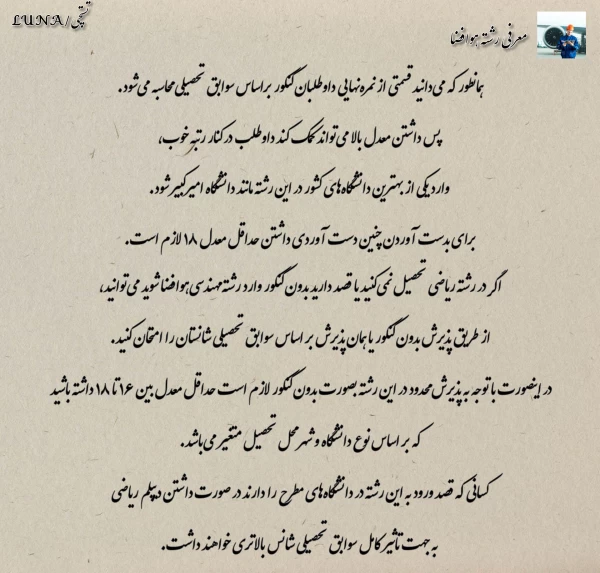 معرفی رشته هوافضا
LUNA/تستچی
همانطور که می‌دانید قسمتی از نمره نهایی داوطلبان کنکور براساس سوابق تحصیلی محاسبه می‌شود.
پس داشتن معدل بالا می‌تواند کمک کند داوطلب در کنار رتبه خوب،
وارد یکی از بهترین دانشگاه‌های کشور در این رشته مانند دانشگاه امیرکبیر شود.
برای بدست آوردن چنین دست آوردی داشتن حداقل معدل ۱۸ لازم است.
اگر در رشته ریاضی تحصیل نمی‌کنید یا قصد دارید بدون کنکور وارد رشته مهندسی هوافضا شوید می‌توانید،
از طریق پذیرش بدون کنکور یا همان پذیرش بر اساس سوابق تحصیلی شانستان را امتحان کنید.
در اینصورت با توجه به پذیرش محدود در این رشته بصورت بدون کنکور لازم است حداقل معدل بین ۱۶ تا ۱۸ داشته باشید
که بر اساس نوع دانشگاه و شهر محل تحصیل متغیر می‌باشد.
کسانی که قصد ورود به این رشته در دانشگاه‌های مطرح را دارند در صورت داشتن دیپلم ریاضی
به جهت تاثیر کامل سوابق تحصیلی شانس بالاتری خواهند داشت.